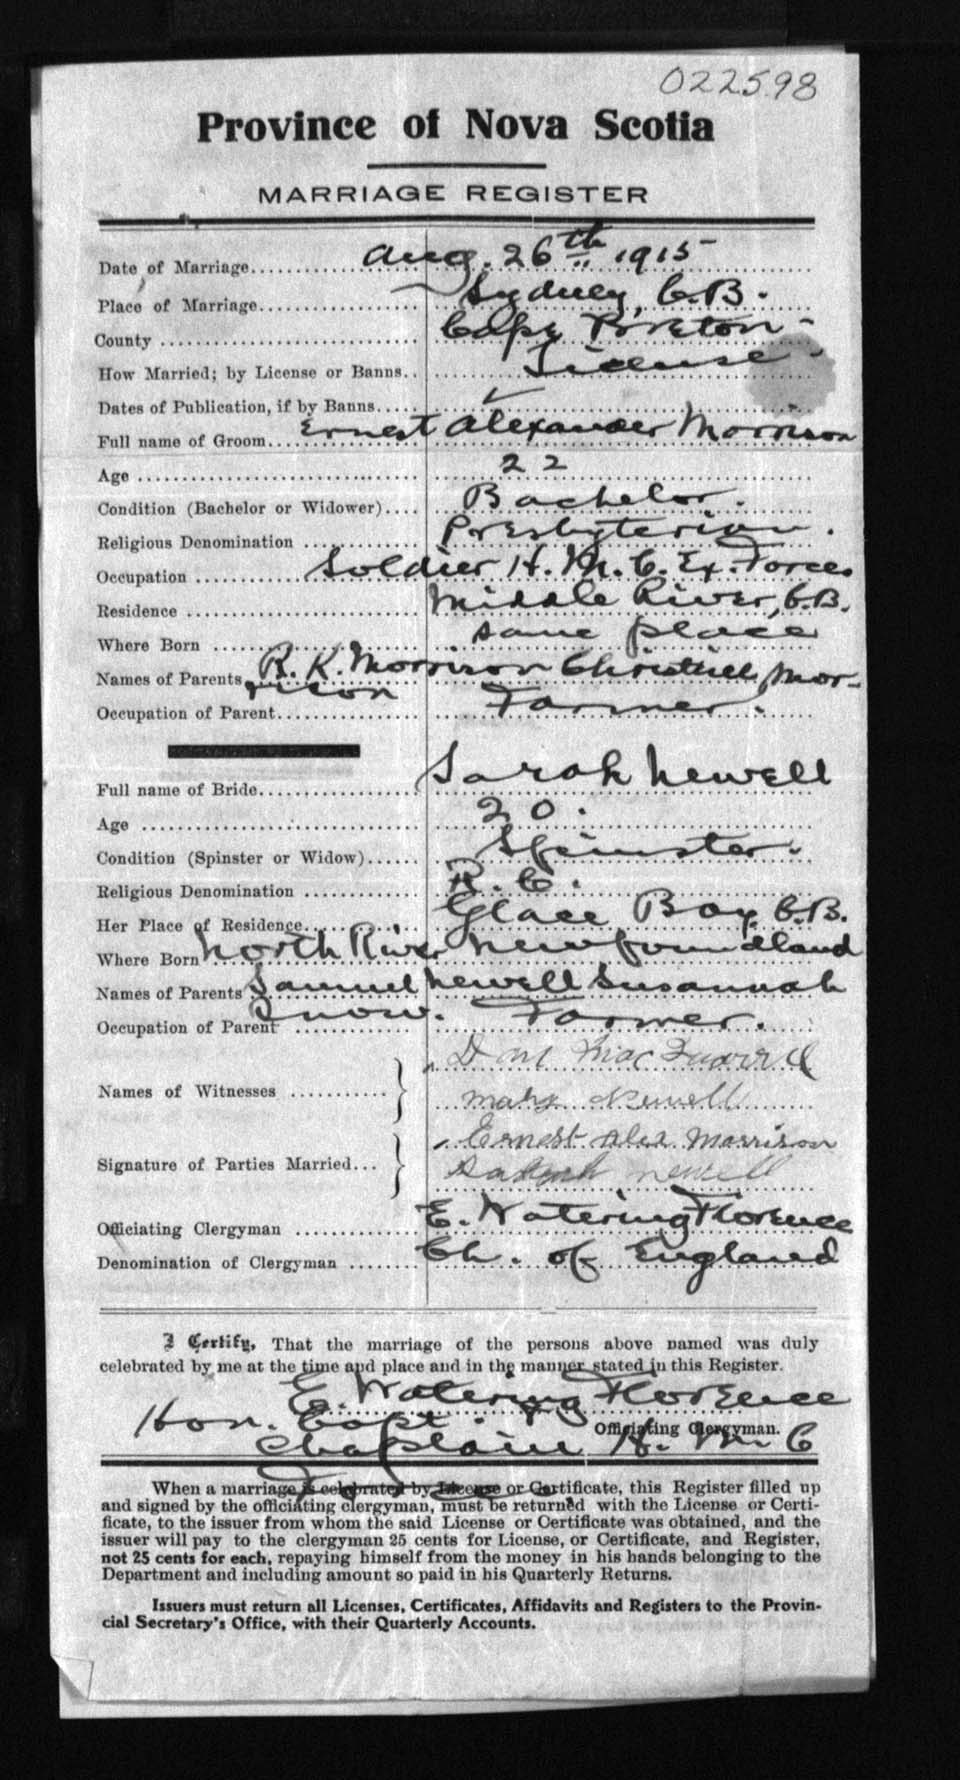 022598
Province of Nova Scotia
MARRIAGE REGISTER
Date of Marriage Aug. 26th 1915
Place of Marriage Sydney, C.B.
County Cape Breton
How Married; by License or Banns License
Dates of Publication, if by Banns
Full name of Groom Ernest Alexander Morrison
Age 22
Condition (Bachelor or Widower) Bachelor.
Religious Denomination Presbyterian.
Occupation Soldier H. M. C. Ex. Forces
Residence Middle River, C.B.
Where Born same place
Names of Parents R. K. Morrison Mor-
rison
Occupation of Parent Farmer.
Full name of Bride Sarah Newell
Age 20.
Condition (Spinster or Widow) Spinster.
Religious Denomination R. C.
Her Place of Residence Glace Bay C.B.
Where Born North River Newfoundland
Names of Parents Samuel Newell Susannah
Snow.
Occupation of Parent Farmer.
Names of Witnesses Dan
Mary Newell
Signature of Parties Married Ernest Alex Morrison
Sarah Newell
Officiating Clergyman E. Watering Florence
Denomination of Clergyman Ch. of England
I Certify, That the marriage of the persons above named was duly
celebrated by me at the time and place and in the manner stated in this Register.
E. Watering Florence
Hon. Capt. &
Officiating Clergyman.
Chaplain H. M. C
When a marriage is celebrated by License or Certificate, this Register filled up
and signed by the officiating clergyman, must be returned with the License or Certi-
ficate, to the issuer from whom the said License or Certificate was obtained, and the
issuer will pay to the clergyman 25 cents for License, or Certificate, and Register,
not 25 cents for each, repaying himself from the money in his hands belonging to the
Department and including amount so paid in his Quarterly Returns.
Issuers must return all Licenses, Certificates, Affidavits and Registers to the Provin-
cial Secretary's Office, with their Quarterly Accounts.